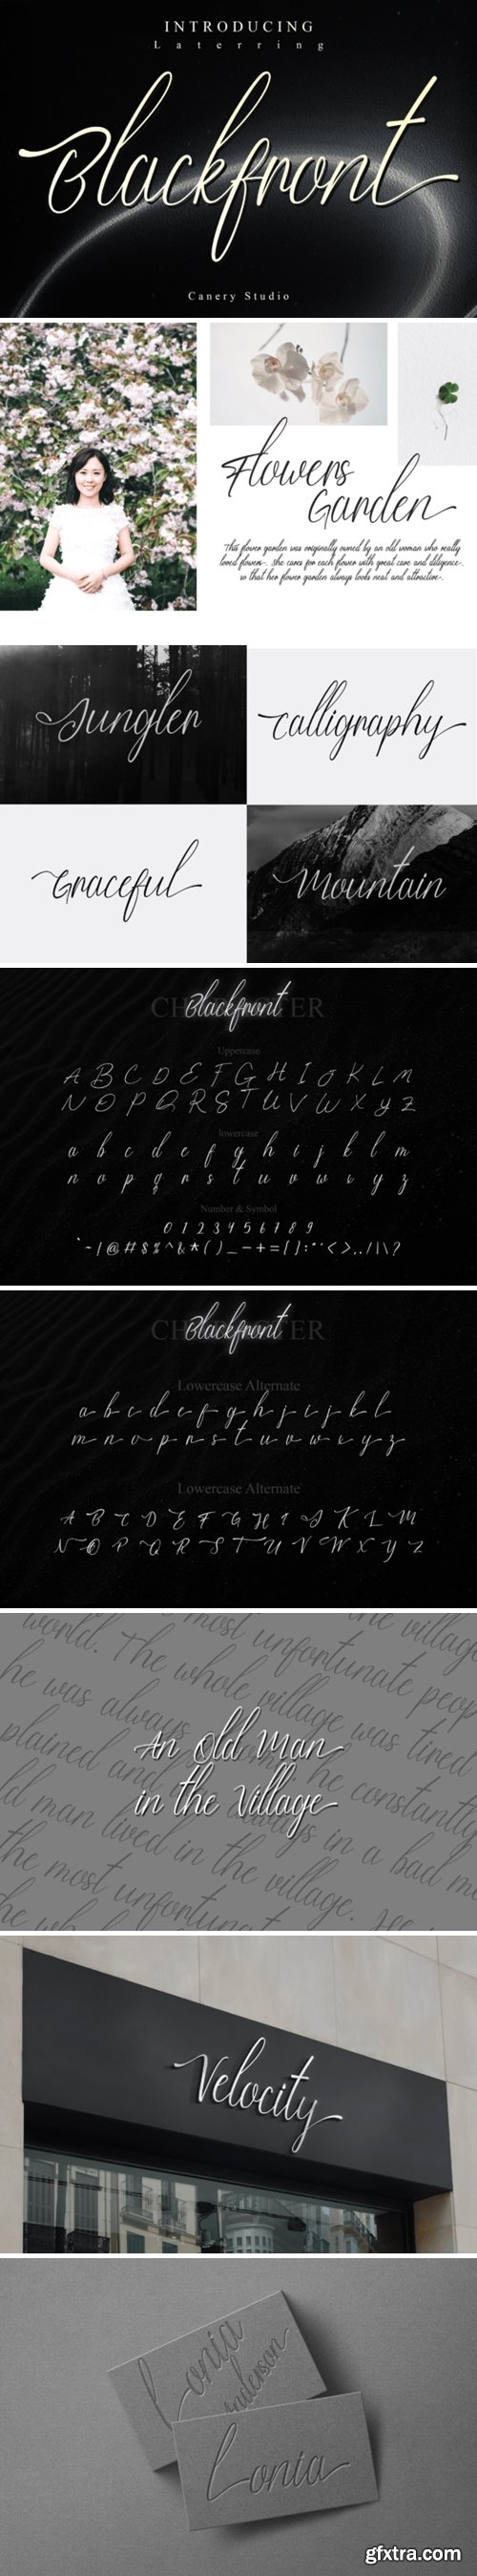 INTRODUCING
Laterring
Blackfront
Canery Studio
Flowers
Garden
This flower garden was originally owned by an old woman who really
loved flowers. She cares for each flower with great care and diligence,
so that her flower garden always looks neat and attractive.
Jungler
Calligraphy
Graceful
Mountain
CHARACTER
Blackfront
Uppercase
A B C D E F G H I J K L M
N O P Q R S T U V W X Y Z
lowercase
a b c d e f g h i j k l m
n o p q r s t u v w x y z
Number & Symbol
0 1 2 3 4 5 6 7 8 9
` ~ ! @ # $ % ^ & * ( ) _ - + = [ ] : " ' < > , . / | \ ?
CHARACTER
Blackfront
Lowercase Alternate
a b c d e f g h i j k l
m n o p r s t u v w x y z
Lowercase Alternate
A B C D E F G H I J K L M
N O P Q R S T U V W X Y Z
world. The most unfortunate peop
he was always The whole village was tired
plained and he constantly
ld man lived in the village. always in a bad m
the most unfortunate
An Old Man
in the Village
Velocity
Lonia
anderson
Lonia
gfxtra.com